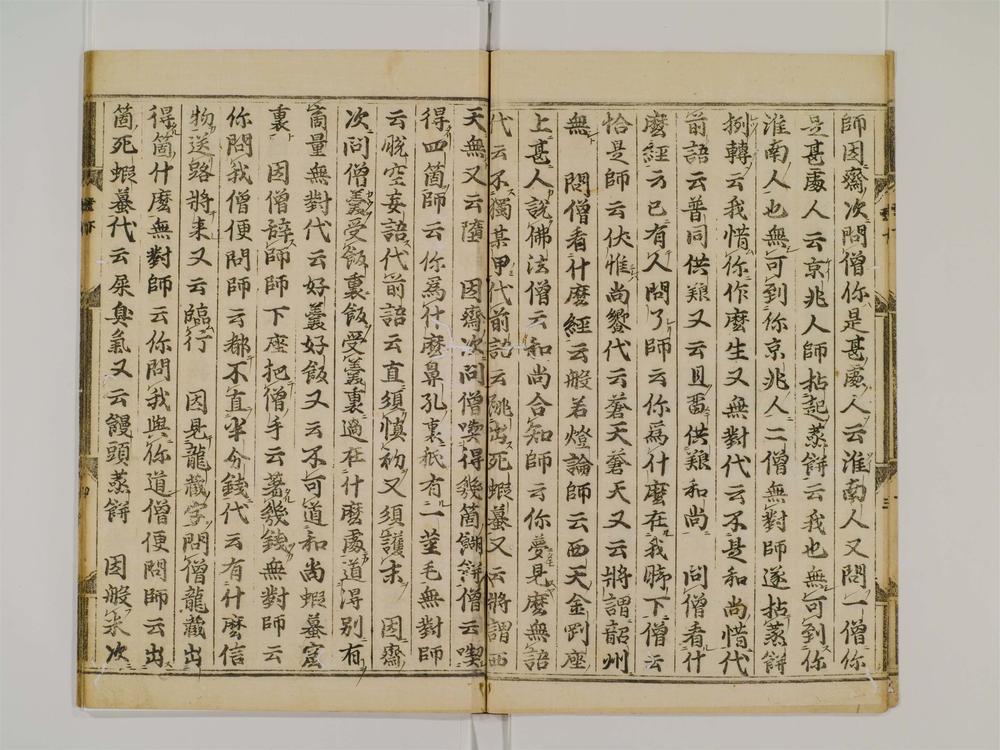 師因齋次問僧你是甚處人云淮南人又問一僧你
是甚處人云京兆人師拈起蒸餅云我也無可到你
淮南人也無可到你京兆人二僧無對師遂拈蒸餅
挒轉云我惜你作麼生又無對代云不是和尚惜代
前語云普同供養又云且留供養和尚　問僧看什
麼經云已有人問了師云你為什麼在我脚下僧云
恰是師云伏惟尚饗代云蒼天蒼天又云將謂韶州
無　問僧看什麼經云般若燈論師云西天金剛座
上甚人說佛法僧云和尚合知師云你夢見麼無語
代云不獨某甲代前語云跳出死蝦蟇又云將謂西
天無又云隨　因齋次問僧喫得幾箇餬餅僧云喫
得四箇師云你為什麼鼻孔裏秖有一莖毛無對師
云脫空妄語代前語云直須慎初又須護末　因齋
次問僧羹受飯裏飯受羹裏過在什麼處道得別有
箇量無對代云好羹好飯又云不可道和尚蝦蟇窟
裏　因僧辭師師下座把僧手云著幾錢無對師云
你問我僧便問師云都不直半分錢代云有什麼信
物送路將来又云臨行　因見龍藏字問僧龍藏出
得箇什麼無對師云你問我與你道僧便問師云出
箇死蝦蟇代云屎臭氣又云饅頭蒸餅　因般米次